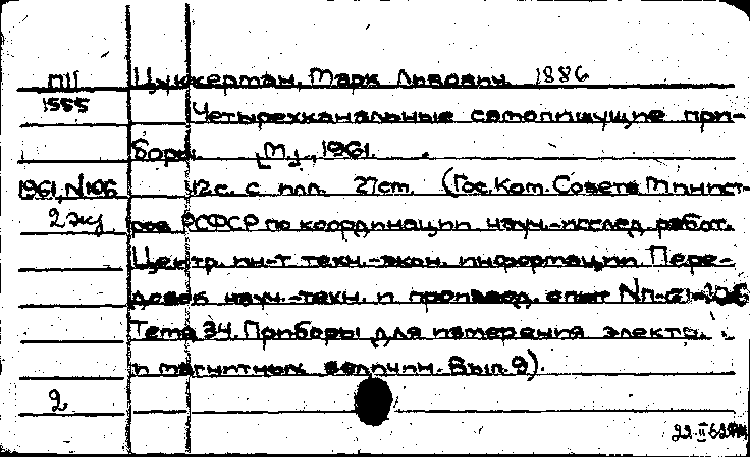 ПII Цуккерман, Марк Львович. 1886
1555 Четырехканальные самопишущие при-
боры. [М.], 1961.
1961, N106 12с. с илл. 27см. (Гос. Ком. Совета Минист-
2 экз. ров РСФСР по координации науч.-исслед. работ.
Центр. ин-т техн.-экон. информации. Пере-
довой науч.-техн. и производ. опыт
Тема 34. Приборы для измерения электр.
и магнитных величин. Вып. 9).
2